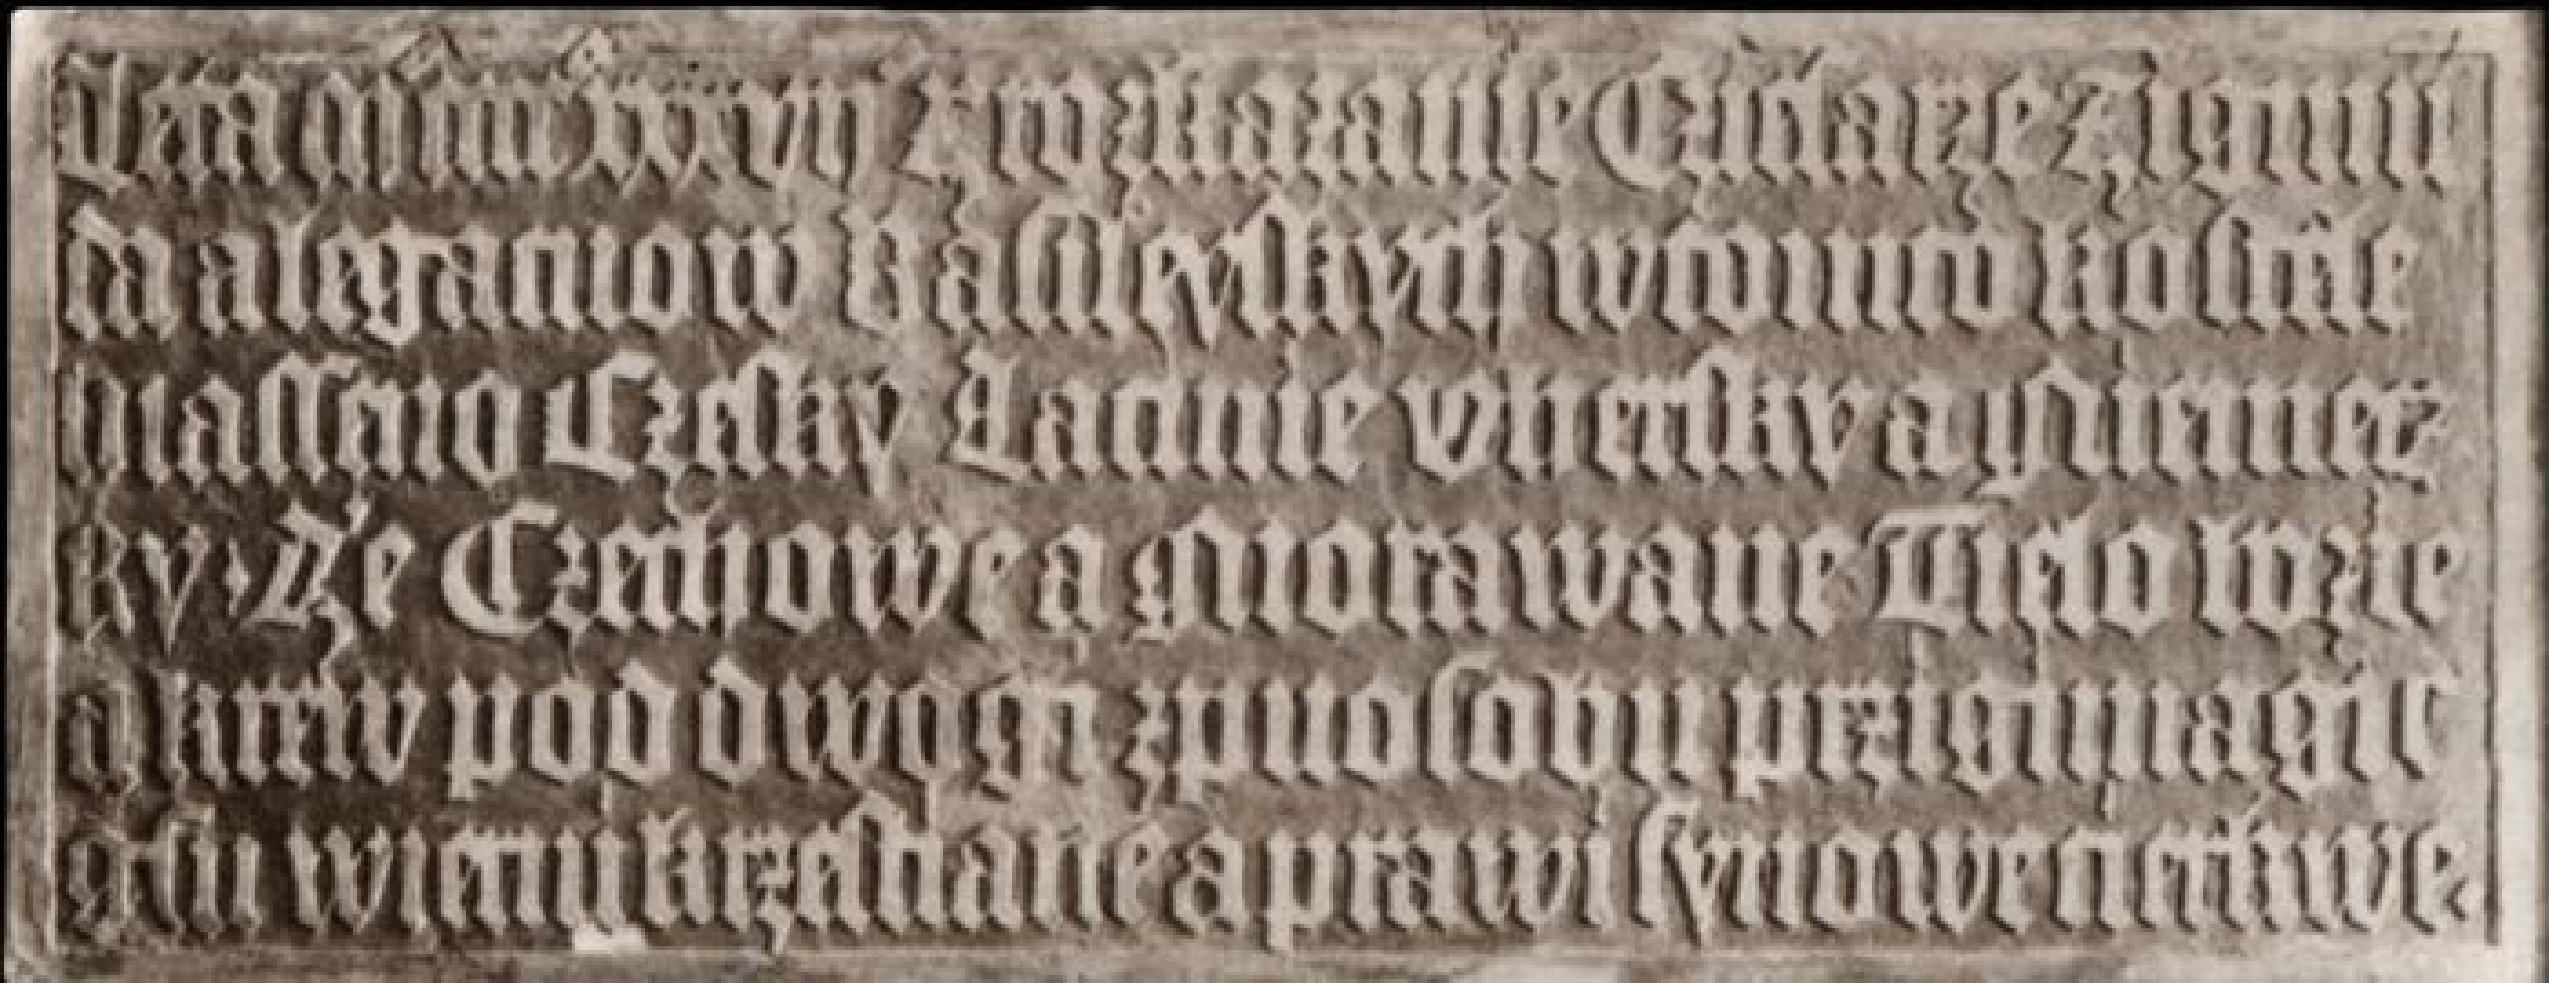 Leta xxxvij Z rozkazanie Cziesarze Zigmu
da a legatuow Bassileyskych w tomto kostele
hlasseno Czesky Latinie Vhersky a Niemecz
ky. Ze Czechowe a Morawane Tielo bozie
a krew pod dwogi zpuosobu przigimagic
gsu wierni krzestiane a prawi synowe cierkwe.